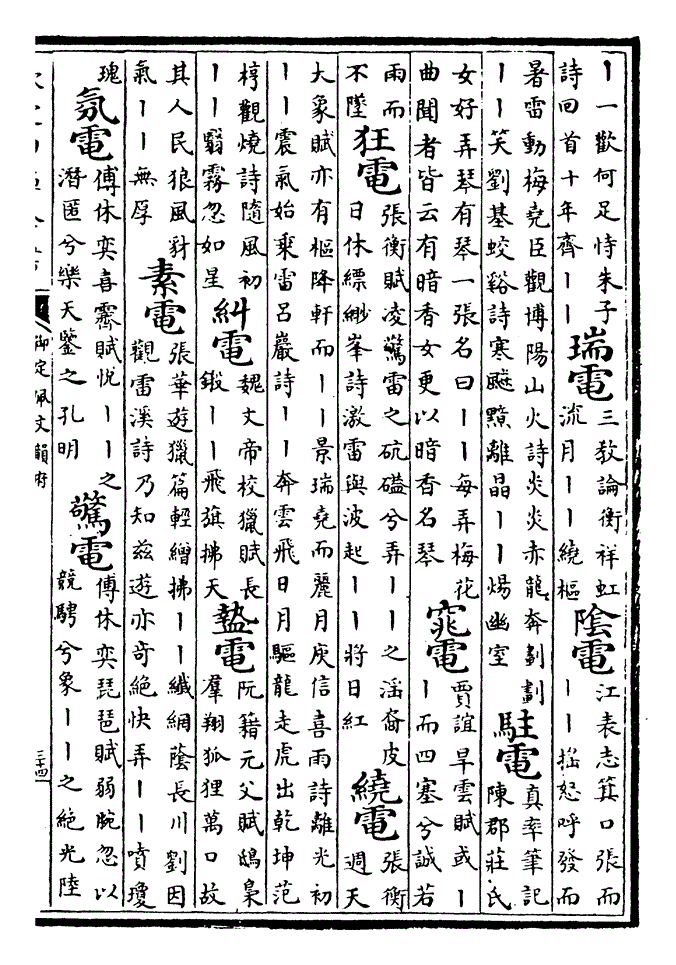 丨一歡何足恃朱子
詩回首十年齊丨丨
瑞電
三教論衡祥虹
流月丨丨繞樞
陰電
江表志箕口張而
丨丨搖怒呼發而
暑雷動梅堯臣觀博陽山火詩炎炎赤龍奔劃劃
丨丨笑劉基蛟谿詩寒飈黯離晶丨丨煬幽室
駐電
真率筆記
陳郡莊氏
女好弄琴有琴一張名曰丨丨每弄梅花
曲聞者皆云有暗香女更以暗香名琴
窕電
賈誼旱雲賦或丨
丨而四塞兮誠若
雨而
不墜
狂電
張衡賦凌驚雷之砊磕兮弄丨丨之淫裔皮
日休縹緲峯詩激雷與波起丨丨將日紅
繞電
張衡
週天
大象賦亦有樞降軒而丨丨景瑞堯而麗月庾信喜雨詩離光初
丨丨震氣始乗雷呂巖詩丨丨奔雲飛日月驅龍走虎出乾坤范
椁觀燒詩隨風初
丨丨翳霧忽如星
糾電
魏文帝校獵賦長
鎩丨丨飛旗拂天
蟄電
阮籍元父賦鴟梟
羣翔狐狸萬口故
其人民狼風豺
氣丨丨無厚
素電
張華遊獵篇輕繒拂丨丨纖網蔭長川劉因
觀雷溪詩乃知兹遊亦奇絶快弄丨丨噴瓊
瑰
氛電
傅休奕喜霽賦悅丨丨之
潛匿兮樂天鑒之孔明
驚電
傅休奕琵琶賦弱腕忽以
競騁兮象丨丨之絶光陸
御定佩文韻府
三十四